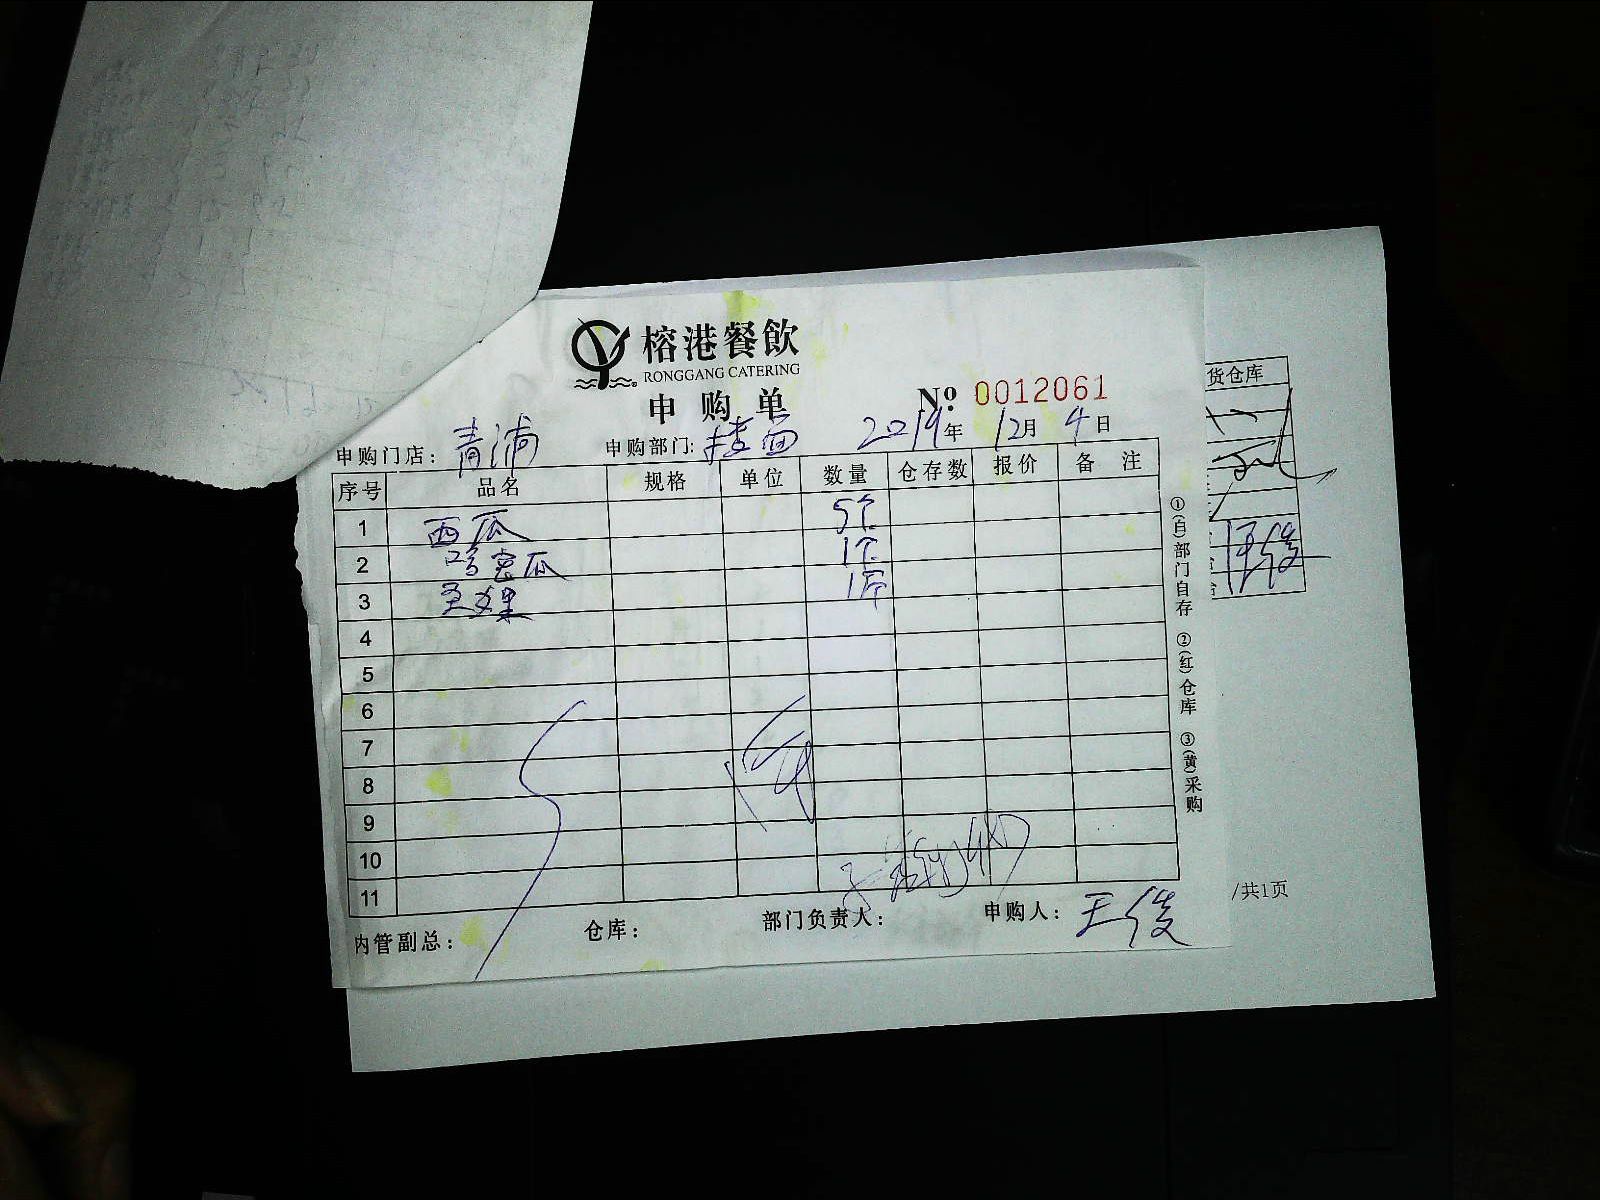 榕港餐飲
RONGGANG CATERING
申购单 № 0012061
申购门店：青浦 申购部门：楼面 2019年 12月 4日
序号 品名 规格 单位 数量 仓存数 报价 备注
1 西瓜 5个
2 哈密瓜 1个
3 圣女果 1斤
4
5
6
7
8
9
10
11
内管副总： 仓库： 部门负责人： 申购人：王俊
①(白)部门自存 ②(红)仓库 ③(黄)采购
货仓库
王俊
/共1页